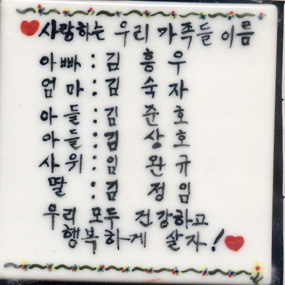 사랑하는 우리 가족들 이름
아빠 : 김 흥 우
엄마 : 김 숙 자
아들 : 김 준 호
아들 : 김 상 호
사위 : 임 완 규
딸 : 김 정 임
우리 모두 건강하고
행복하게 살자!